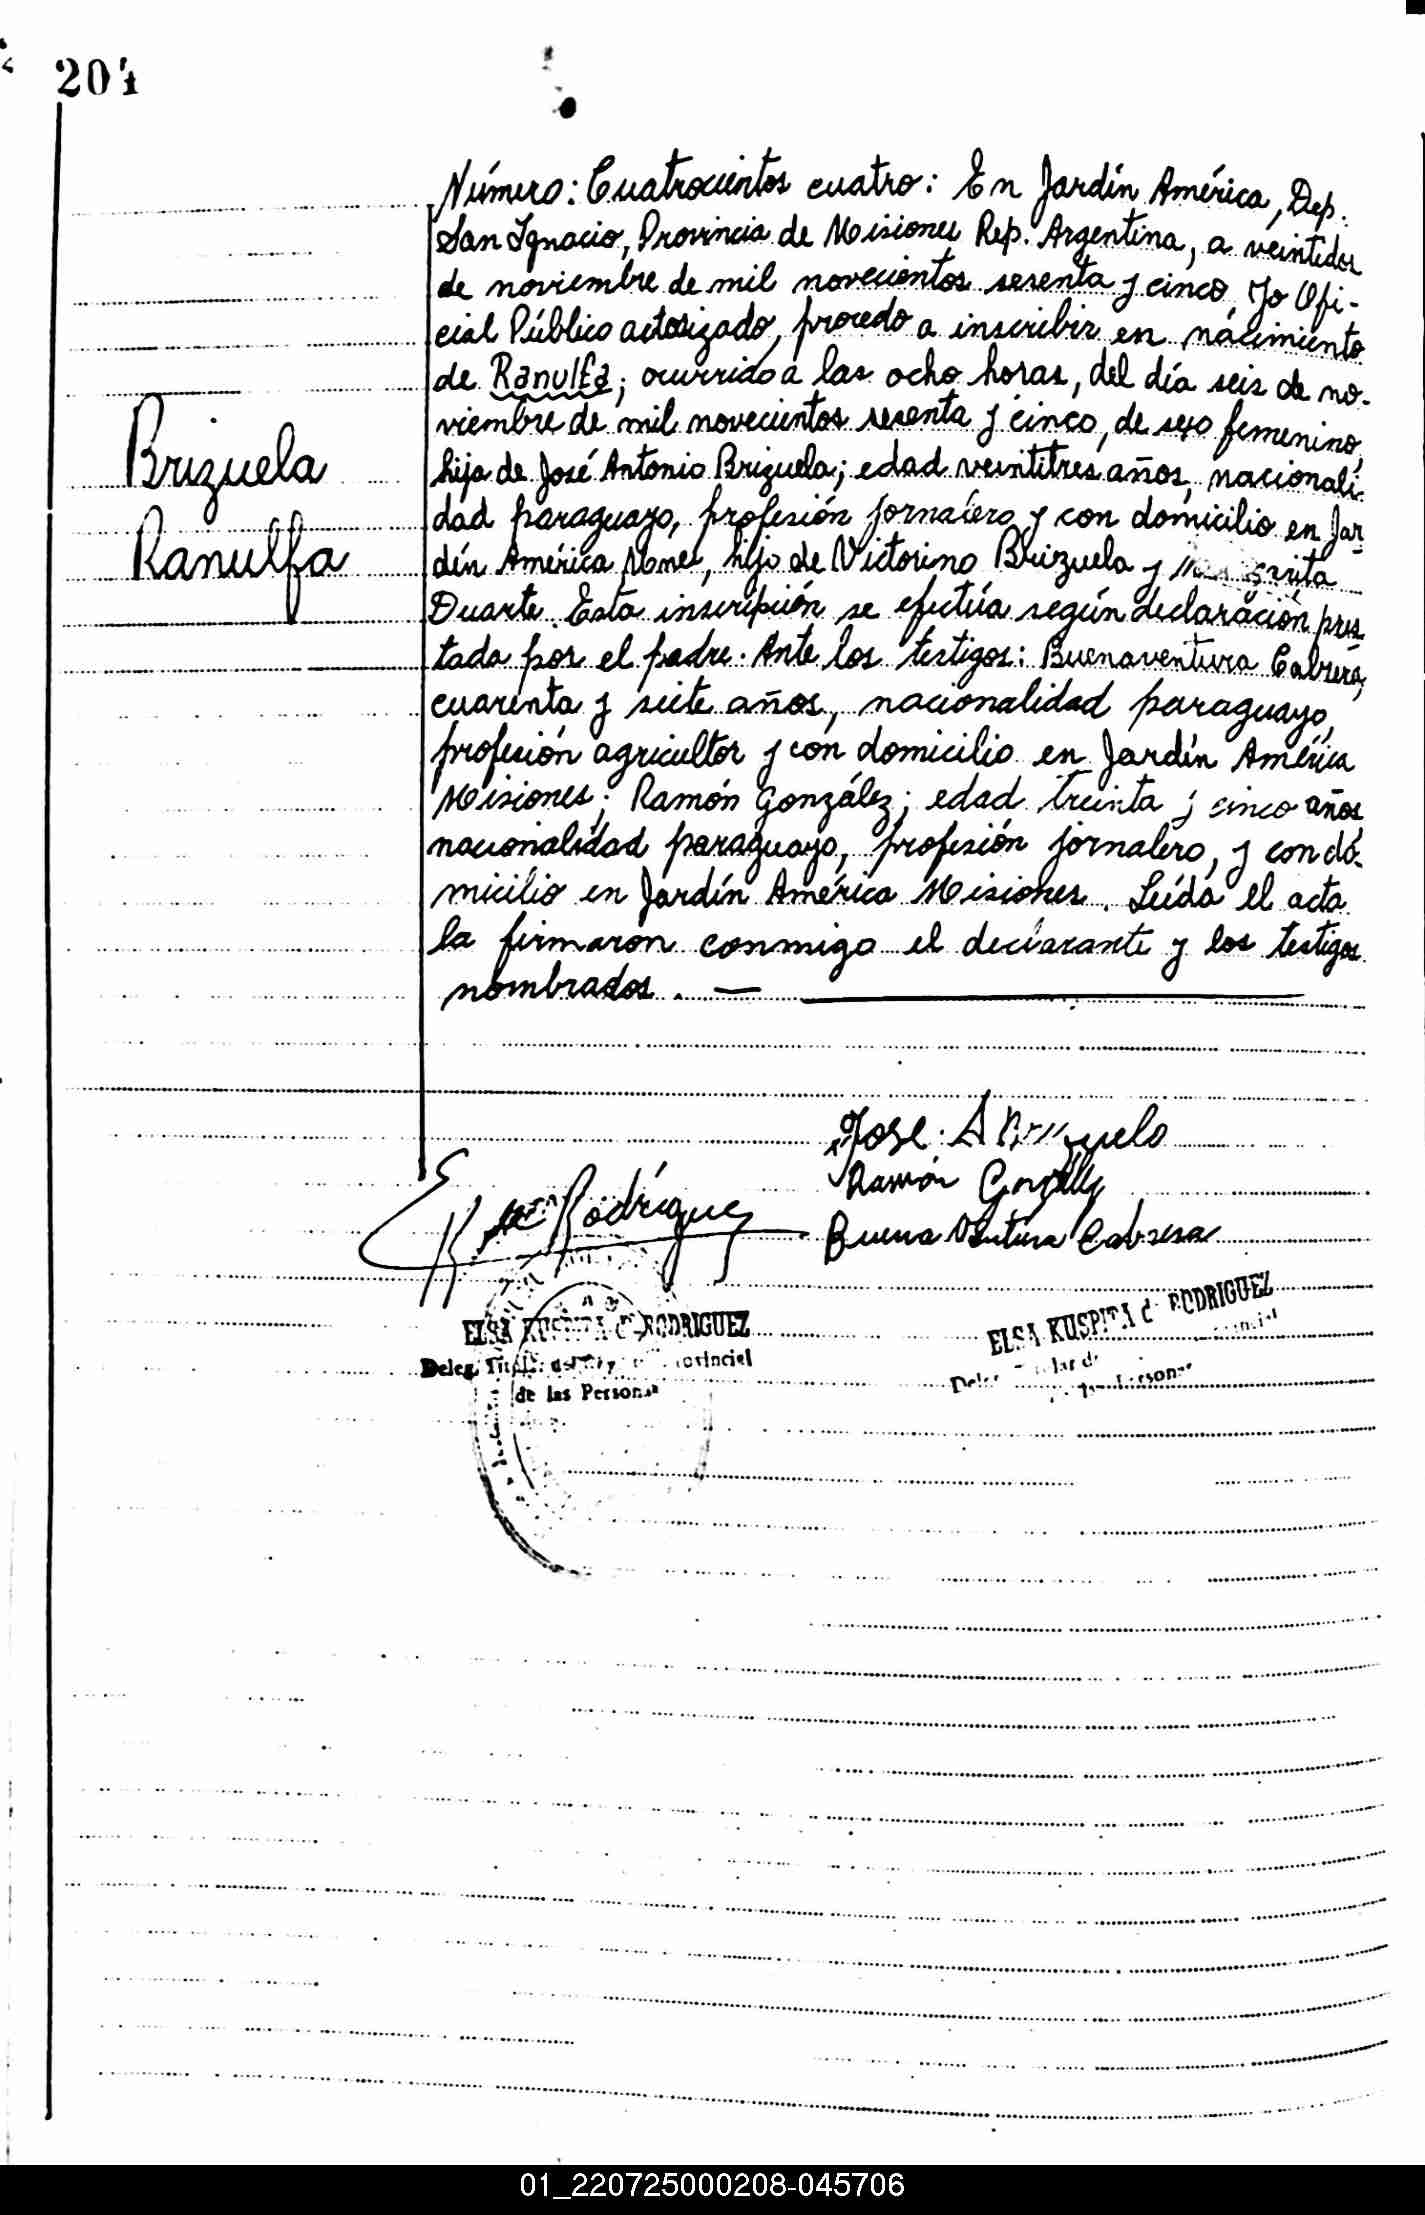 204
Número: Cuatrocientos cuatro: En Jardín América, Dep.
San Ignacio, Provincia de Misiones Rep. Argentina, a veintidos
de noviembre de mil novecientos sesenta y cinco, Yo Ofi-
cial Público autorizado, procedo a inscribir en nacimiento
de Ranulfa; ocurrido a las ocho horas, del día seis de no-
viembre de mil novecientos sesenta y cinco, de sexo femenino,
hija de José Antonio Brizuela; edad veintitres años, nacionali-
dad paraguayo, profesión jornalero y con domicilio en Jar-
dín América Mones, hijo de Victorino Brizuela y
Duarte. Esta inscripción se efectúa según declaración pres-
tada por el padre. Ante los testigos: Buenaventura Cabrera,
cuarenta y siete años, nacionalidad paraguayo,
profesión agricultor y con domicilio en Jardín América
Misiones; Ramón González; edad treinta y cinco años,
nacionalidad paraguayo, profesión jornalero, y con do-
micilio en Jardín América Misiones. Leída el acta
la firmaron conmigo el declarante y los testigos
nombrados. —
Brizuela
Ranulfa
Jose A Brizuela
Ramón
Buena Ventura Cabrera
Rodríguez
ELSA KUSPITA d RODRIGUEZ
Deleg. Titular del
de las Personas
ELSA KUSPITA d RODRIGUEZ
01_220725000208-045706